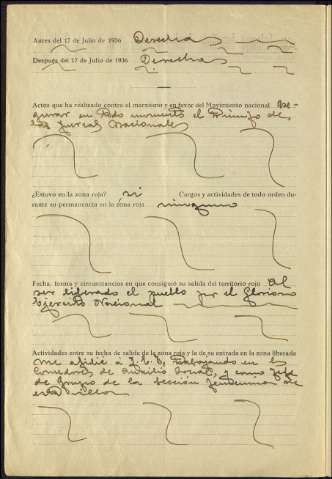 Antes del 17 de Julio de 1936 Derechas
Después del 17 de Julio de 1936 Derechas
Actos que ha realizado contra el marxismo y en favor del Movimiento nacional
en todo momento el Triunfo de
las fuerzas Nacionales
¿Estuvo en la zona roja? si Cargos y actividades de todo orden du-
rante su permanencia en la zona roja ninguno
Fecha, forma y circunstancias en que consiguió su salida del territorio rojo Al
ser liberado el pueblo por el Glorioso
Ejercito Nacional
Actividades entre su fecha de salida de la zona roja y la de su entrada en la zona liberada
me afilie a F.E.T, trabajando en los
Comedores de Auxilio Social, y como Jefe
de Grupo de la Sección Femenina de
esta